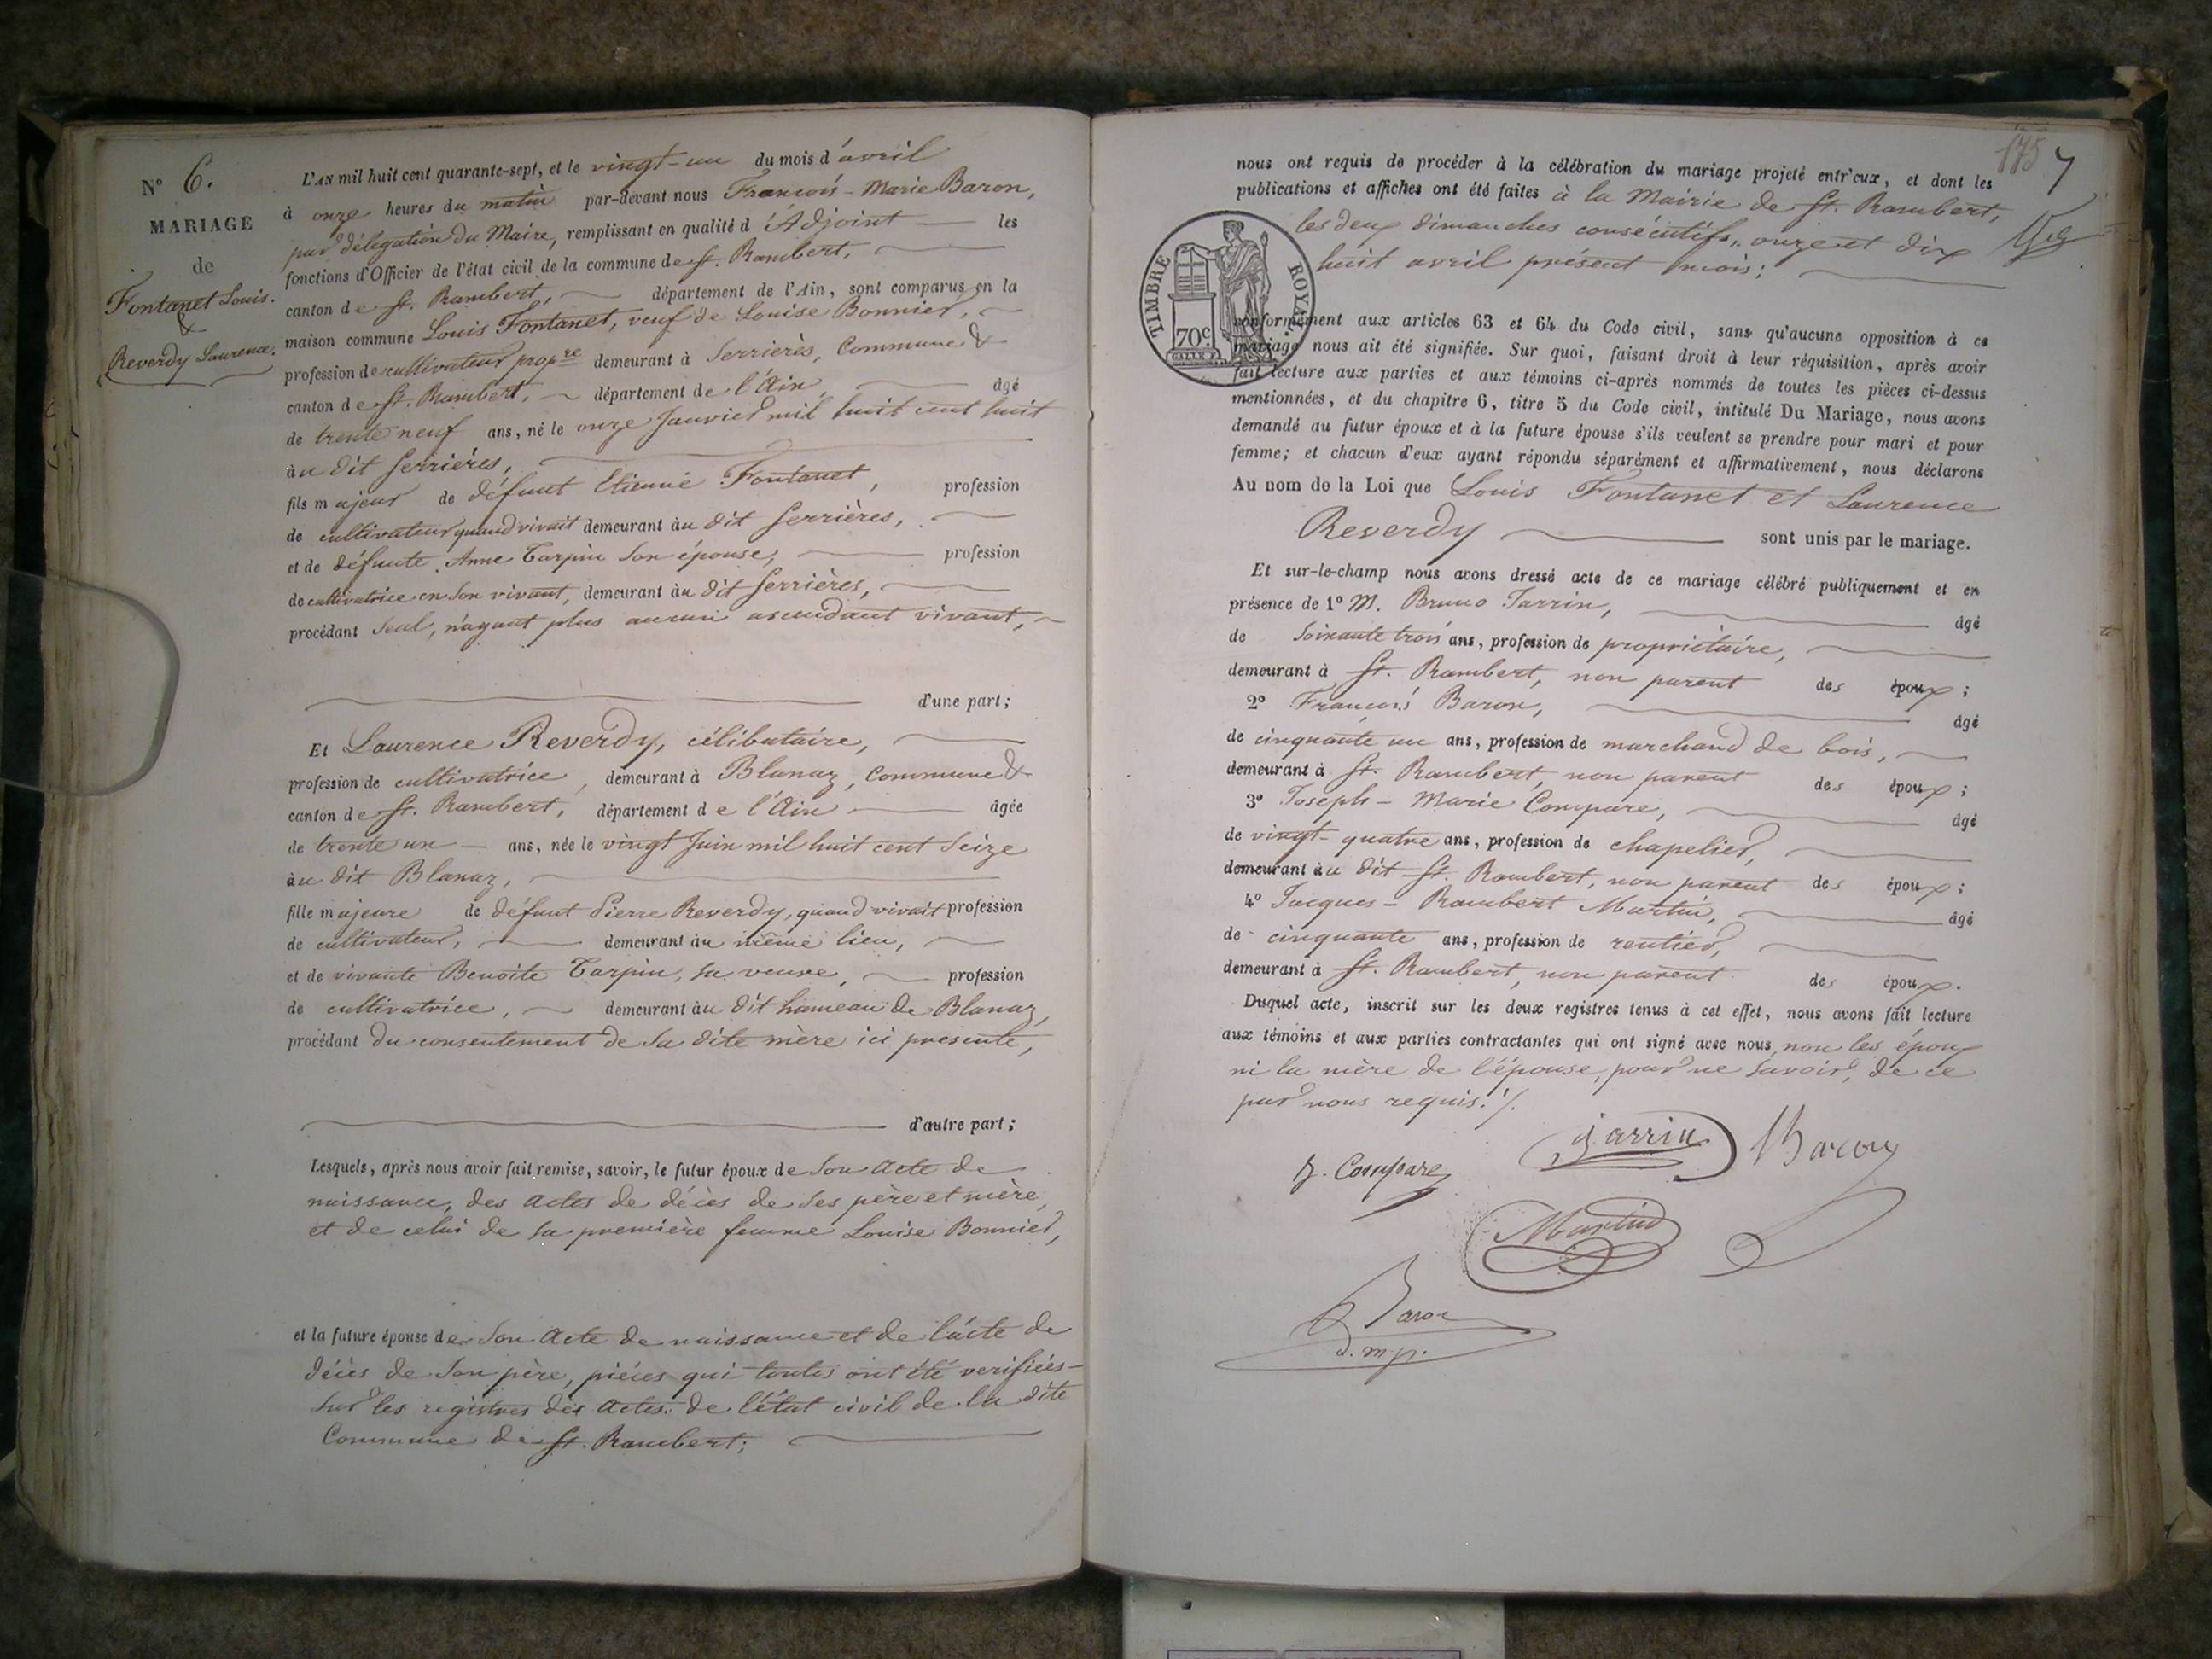 N° 6.
MARIAGE
de
Fontanet Louis.
&
Reverdy Laurence.
L'AN mil huit cent quarante-sept, et le vingt-un du mois d'avril
à onze heures du matin par-devant nous François-Marie Baron,
par délégation du Maire, remplissant en qualité d'Adjoint les
fonctions d'Officier de l'état civil de la commune de St. Rambert,
canton de St. Rambert, département de l'Ain, sont comparus en la
maison commune Louis Fontanet, veuf de Louise Bonnier,
profession de cultivateur propre demeurant à Serrières, Commune &
canton de St. Rambert, département de l'Ain, âgé
de trente neuf ans, né le onze Janvier mil huit cent huit
au dit Serrières,
fils majeur de défunt Etienne Fontanet, profession
de cultivateur quand vivait demeurant au dit Serrières,
et de défunte Anne Tarpin son épouse, profession
de cultivatrice en son vivant, demeurant au dit Serrières,
procédant seul, n'ayant plus aucun ascendant vivant,
d'une part;
Et Laurence Reverdy, célibataire,
profession de cultivatrice, demeurant à Blanaz, Commune &
canton de St. Rambert, département de l'Ain âgée
de trente un ans, née le vingt Juin mil huit cent seize
au dit Blanaz,
fille majeure de défunt Pierre Reverdy, quand vivait profession
de cultivateur, demeurant au même lieu,
et de vivante Benoite Tarpin, sa veuve, profession
de cultivatrice, demeurant au dit hameau de Blanaz,
procédant du consentement de sa dite mère ici présente,
d'autre part;
Lesquels, après nous avoir fait remise, savoir, le futur époux de son acte de
naissance, des actes de décès de ses père et mère,
et de celui de sa première femme Louise Bonnier,
et la future épouse de son acte de naissance et de l'acte de
décès de son père, pièces qui toutes ont été verifiées
sur les registres des actes de l'état civil de la dite
Commune de St. Rambert;
175
7
nous ont requis de procéder à la célébration du mariage projeté entr'eux, et dont les
publications et affiches ont été faites à la Mairie de St. Rambert,
les deux dimanches consécutifs, onze et dix
huit avril présent mois;
TIMBRE ROYAL
70c
conformément aux articles 63 et 64 du Code civil, sans qu'aucune opposition à ce
mariage nous ait été signifiée. Sur quoi, faisant droit à leur réquisition, après avoir
fait lecture aux parties et aux témoins ci-après nommés de toutes les pièces ci-dessus
mentionnées, et du chapitre 6, titre 5 du Code civil, intitulé Du Mariage, nous avons
demandé au futur époux et à la future épouse s'ils veulent se prendre pour mari et pour
femme; et chacun d'eux ayant répondu séparément et affirmativement, nous déclarons
Au nom de la Loi que Louis Fontanet et Laurence
Reverdy sont unis par le mariage.
Et sur-le-champ nous avons dressé acte de ce mariage célébré publiquement et en
présence de 1° M. Bruno Jarrin, âgé
de soixante trois ans, profession de propriétaire,
demeurant à St. Rambert, non parent des époux;
2° François Baron, âgé
de cinquante un ans, profession de marchand de bois,
demeurant à St. Rambert, non parent des époux;
3° Joseph-Marie Compare, âgé
de vingt-quatre ans, profession de chapelier,
demeurant au dit St. Rambert, non parent des époux;
4° Jacques-Rambert Martin, âgé
de cinquante ans, profession de rentier,
demeurant à St. Rambert, non parent des époux.
Duquel acte, inscrit sur les deux registres tenus à cet effet, nous avons fait lecture
aux témoins et aux parties contractantes qui ont signé avec nous, non les époux
ni la mère de l'épouse, pour ne savoir, de ce
par nous requis.
J. Compare
Jarrin
Baron
Martin
Baron